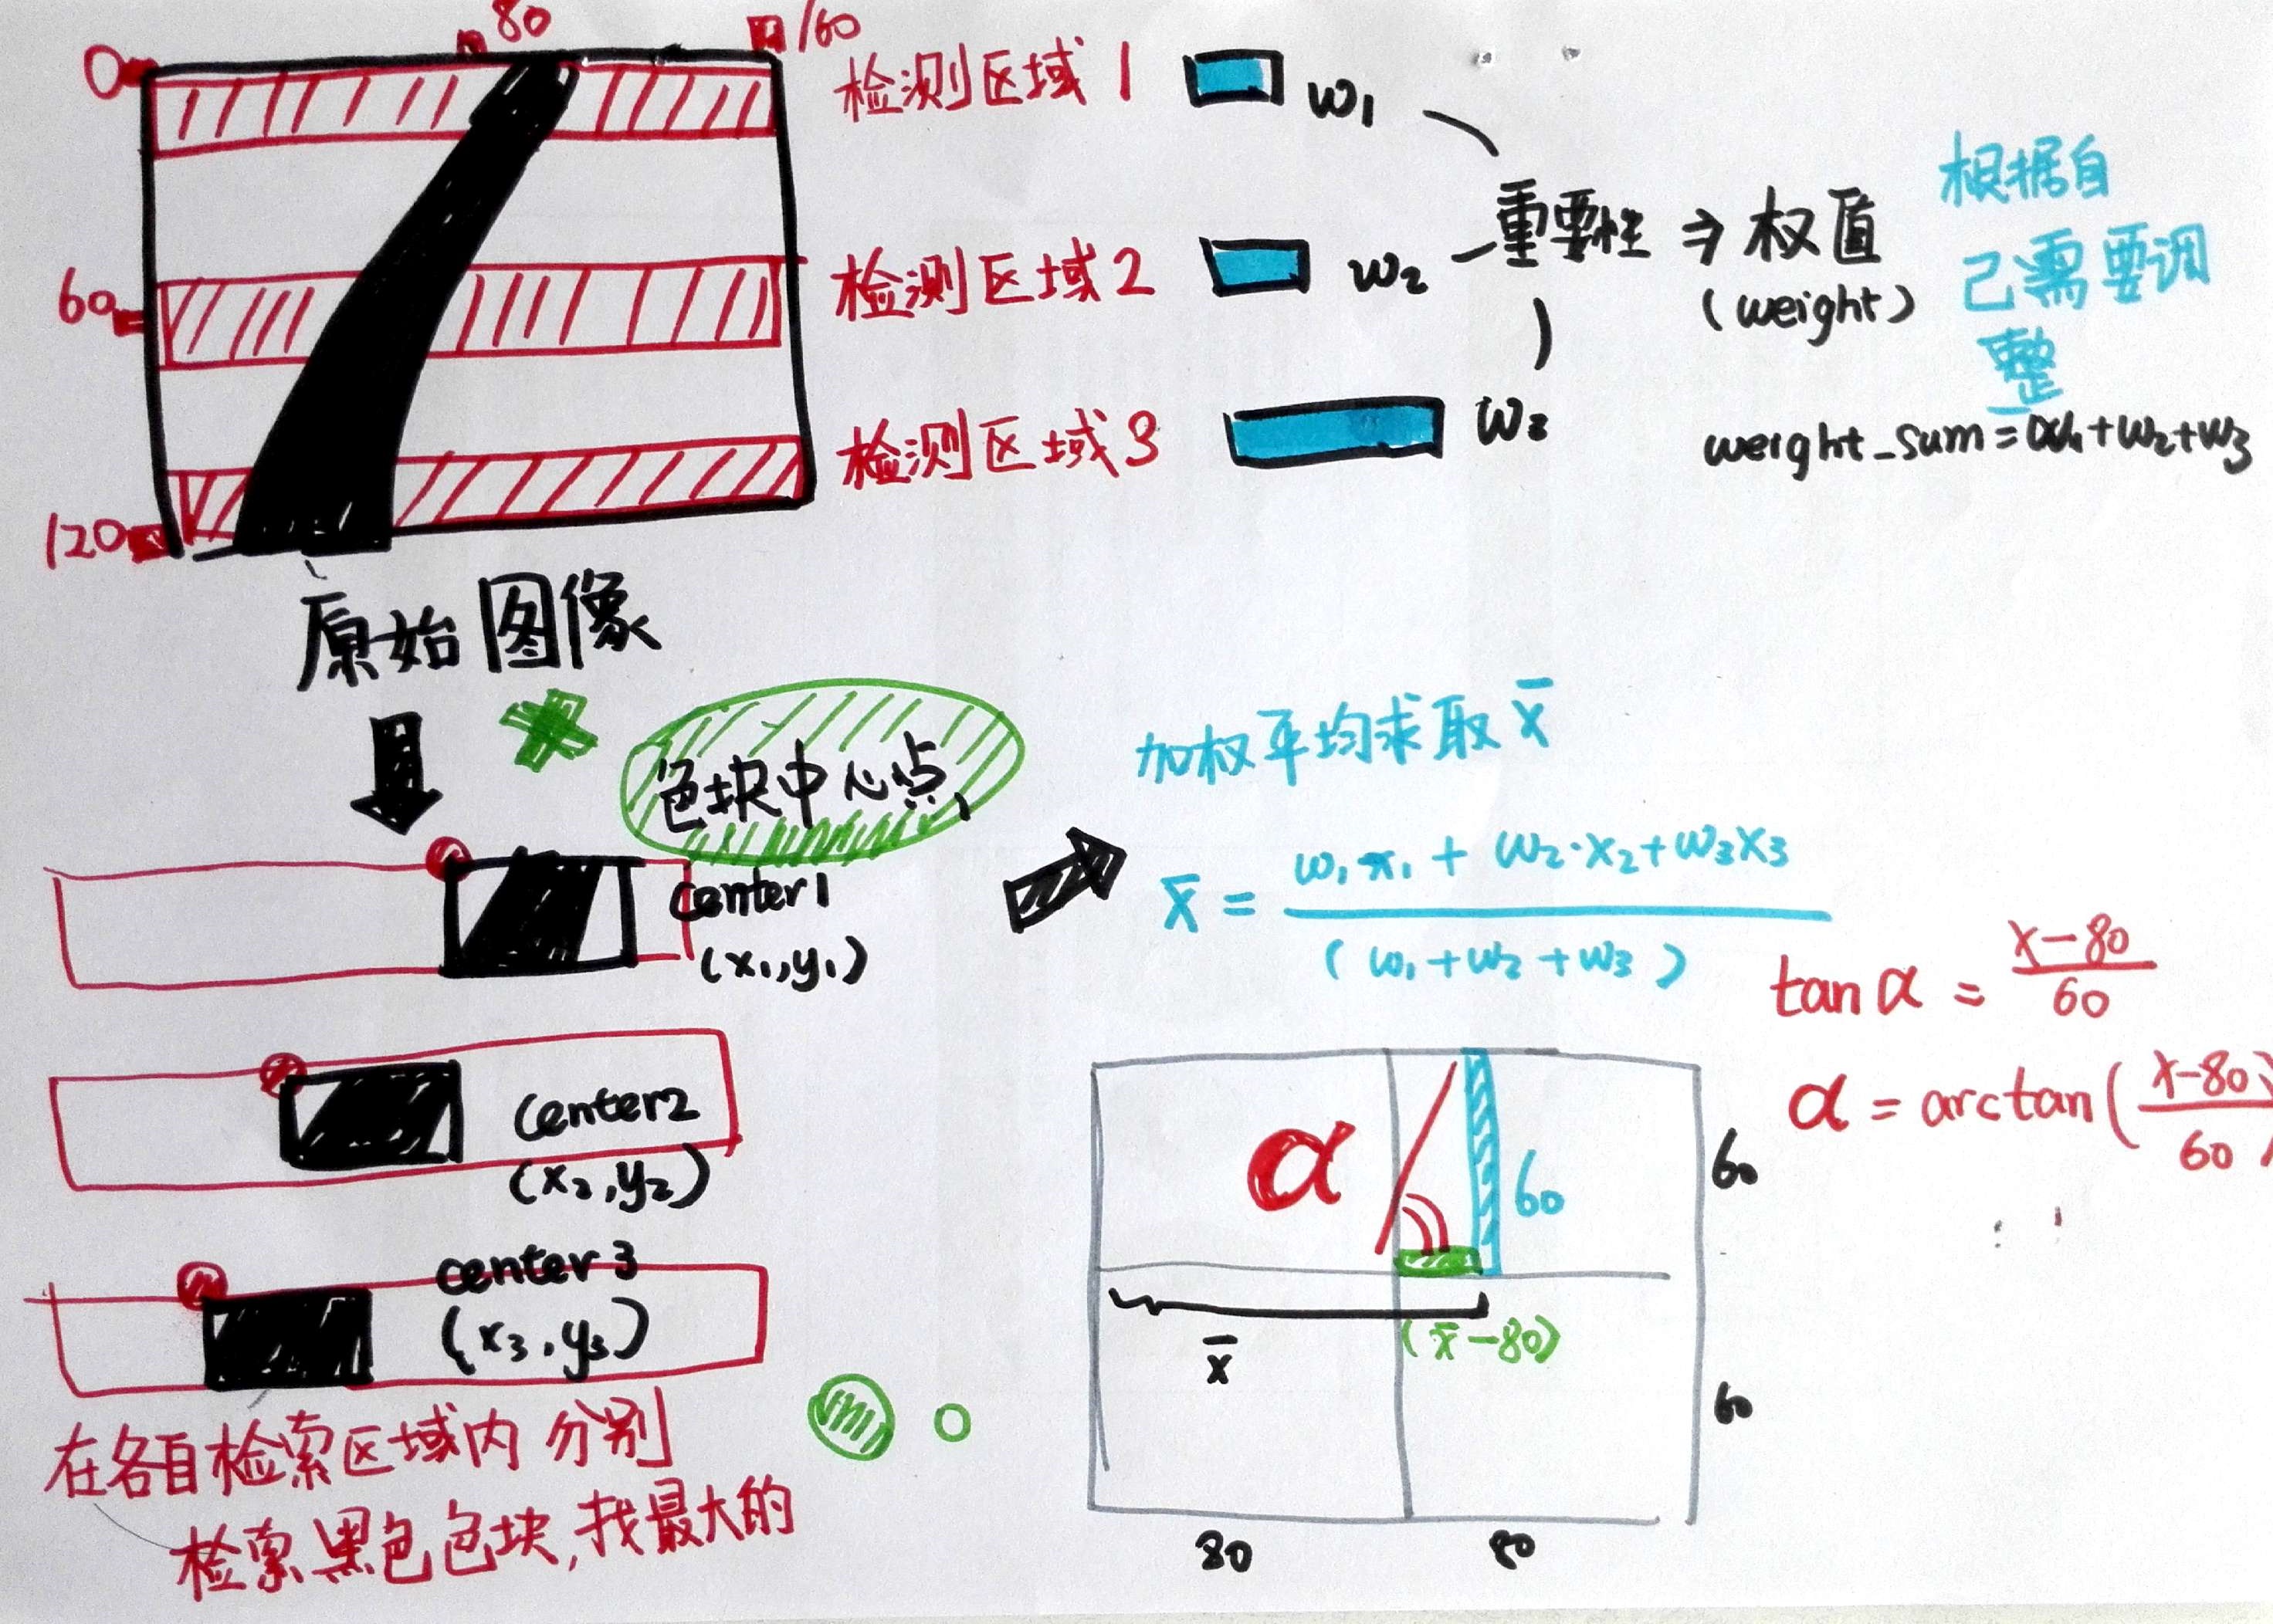 0
80
160
60
120
检测区域1
w₁
检测区域2
w₂
检测区域3
w₃
重要性 ⇒ 权值
(weight)
根据自
己需要调
整
weight_sum=w₁+w₂+w₃
原始图像
色块中心点
center1
(x₁,y₁)
center2
(x₂,y₂)
center3
(x₃,y₃)
在各自检索区域内分别
检索黑色色块,找最大的
加权平均求取x̄
x̄ = w₁x₁ + w₂·x₂+w₃x₃
(w₁+w₂+w₃)
tanα = x-80
60
α = arctan(x-80)
60
α
60
60
x̄
(x̄-80)
60
80
80